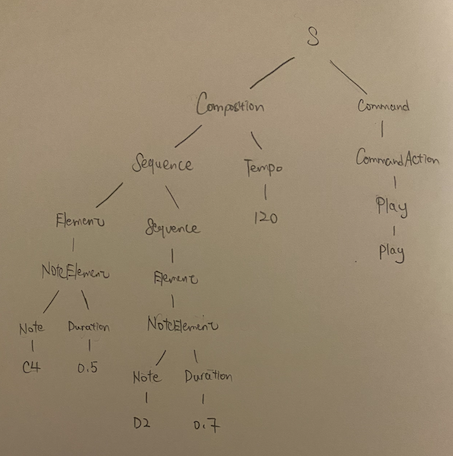 S
Composition Command
Sequence Tempo CommandAction
Element Sequence 120 Play
NoteElement Element Play
Note Duration NoteElement
C4 0.5 Note Duration
D2 0.7